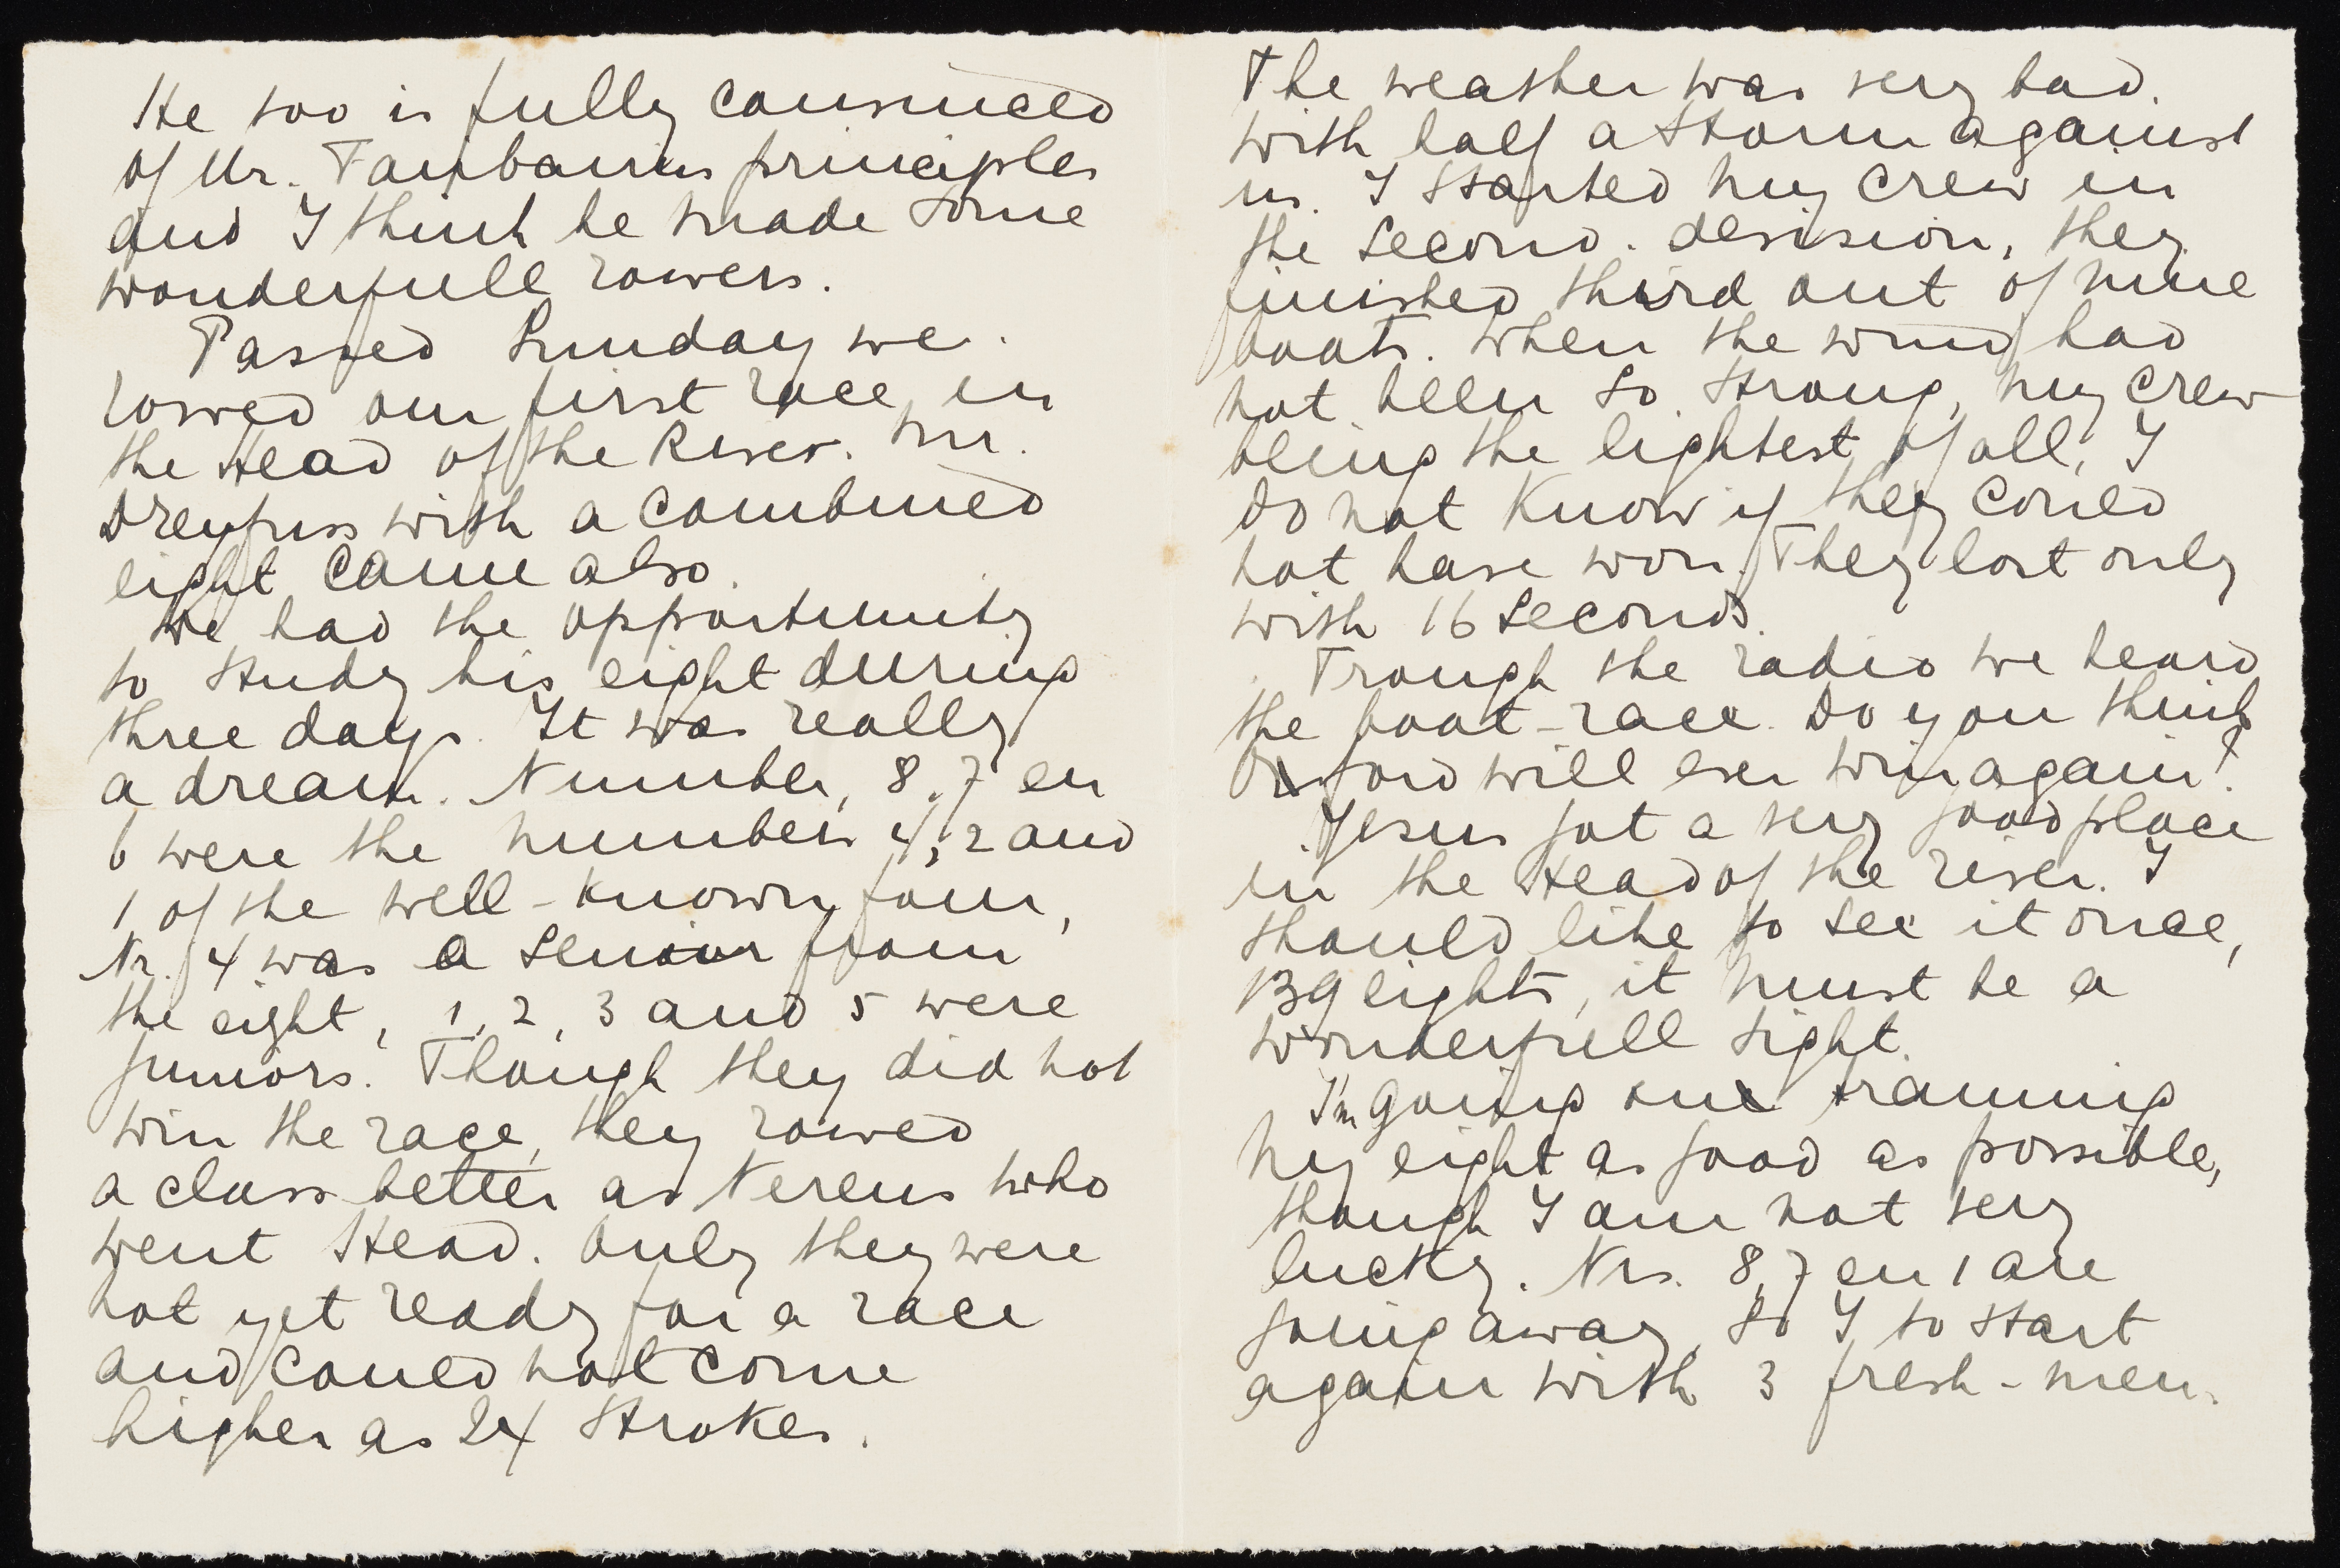 He too is fully convinced
of Mr. Fairbairns principles
and I think he made some
wonderfull rowers.
Passed Sunday we
rowed our first race in
the Head of the River. Mr.
Dreyfuss with a combined
eight came also.
We had the opportunity
to study his eight during
three days. It was really
a dream. Number, 8, 7 en
6 were the numbers 4, 2 and
1 of the well-known four,
Nr. 4 was a senior from
the eight, 1, 2, 3 and 5 were
juniors. Though they did not
win the race, they rowed
a class better as Nereus who
went Head. Only they were
not yet ready for a race
and could not come
higher as 24 strokes.
The weather was very bad.
with half a storm against
us. I started my crew in
the second. devision, they
finished third out of nine
boats. When the wind had
not been so strong, my crew
being the lightest of all, I
do not know if they could
not have won. They lost only
with 16 seconds.
Trough the radio we heard
the boat-race. Do you think
Oxford will ever win again?
Jesus got a very good place
in the Head of the river. I
should like to see it once,
139 eights, it must be a
wonderfull sight.
I'm going on training
my eight as good as possible,
though I am not very
lucky. Nrs. 8, 7 en 1 are
going away, so I to start
again with 3 fresh-men.